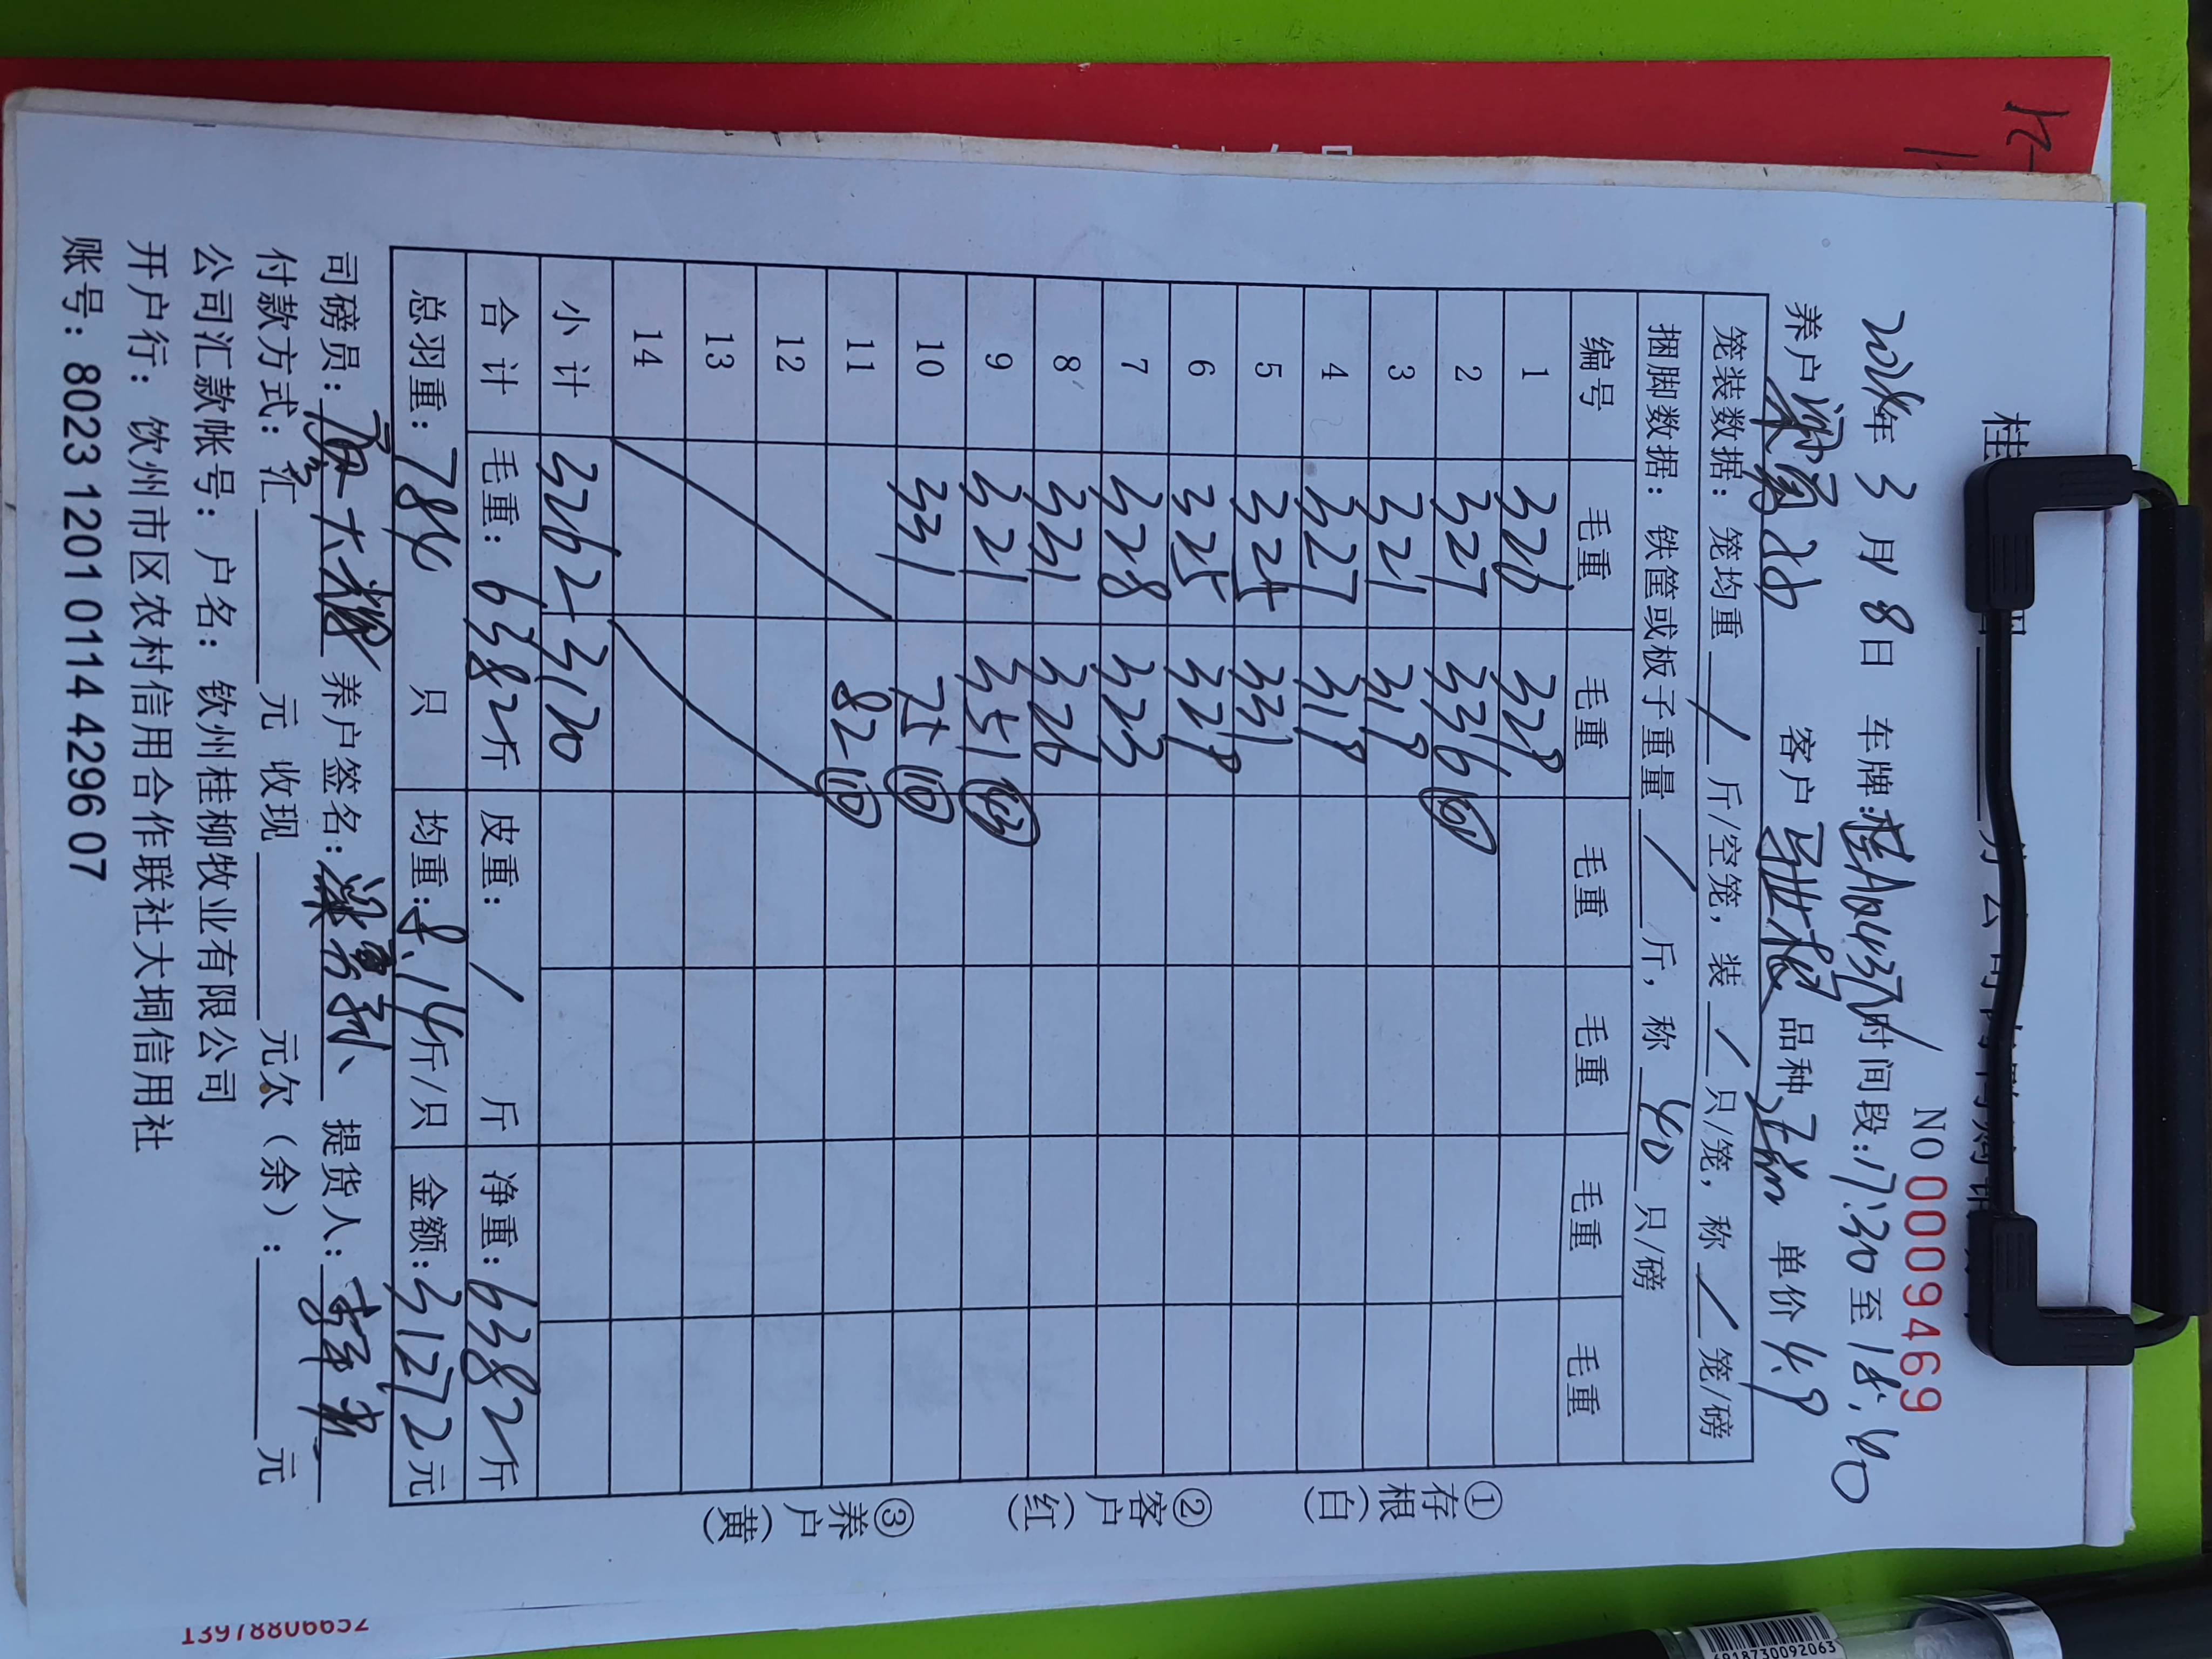 NO 00009469
2024年 3 月 8 日 车牌:桂A 时间段:17:30至18:40
养户 梁 客户 品种 单价 4.9
笼装数据: 笼均重 / 斤/空笼, 装 / 只/笼, 称 / 笼/磅
捆脚数据: 铁筐或板子重量 / 斤, 称 40 只/磅
编号 毛重 毛重 毛重 毛重 毛重 毛重
1 326 329
2 327 336
3 321 319
4 327 319
5 324 331
6 325 329
7 328 323
8 331 326
9 321 351
10 331 75 (10)
11 82 (10)
12
13
14
小计 3262 3120
合计 毛重: 6382斤 皮重: / 斤 净重: 6382斤
总羽重: 784 只 均重: 8.14斤/只 金额: 31272元
司磅员: 养户签名: 梁 提货人:
付款方式: 汇 元 收现 元欠(余): 元
公司汇款帐号: 户名: 钦州桂柳牧业有限公司
开户行: 钦州市区农村信用合作联社大垌信用社
账号: 8023 1201 0114 4296 07
①存根(白) ②客户(红) ③养户(黄)
13978806652
6918730092063